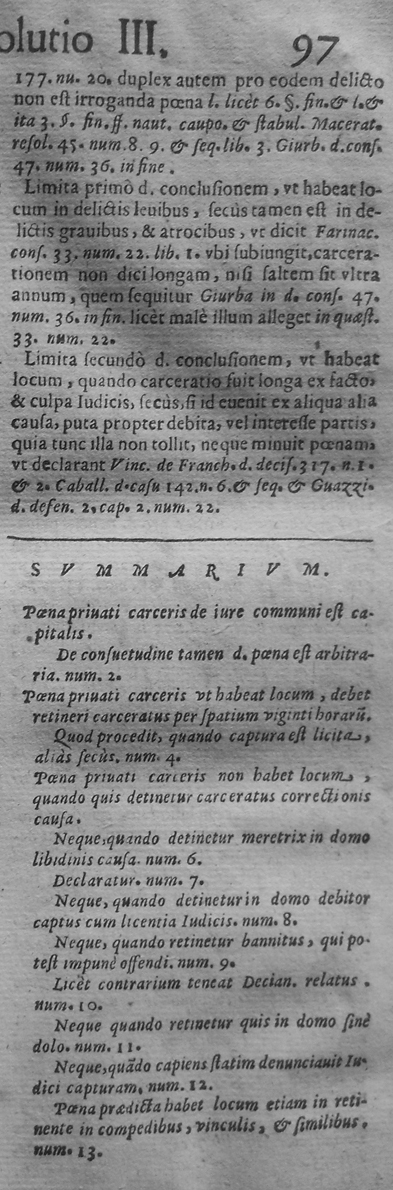 olutio III. 97
177. nu. 20. duplex autem pro eodem delicto
non est irroganda pœna l. licèt 6. §. fin. & l. &
ita 3. §. fin. ff. naut. caupo. & stabul. Macerat.
resol. 45. num. 8. 9. & seq. lib. 3. Giurb. d. cons.
47. num. 36. in fine.
Limita primò d. conclusionem, vt habeat lo-
cum in delictis leuibus, secùs tamen est in de-
lictis grauibus, & atrocibus, vt dicit Farinac.
cons. 33. num. 22. lib. 1. vbi subiungit, carcera-
tionem non dici longam, nisi saltem sit vltra
annum, quem sequitur Giurba in d. cons. 47.
num. 36. in fin. licèt malè illum alleget in quæst.
33. num. 22.
Limita secundò d. conclusionem, vt habeat
locum, quando carceratio fuit longa ex facto,
& culpa Iudicis, secùs, si id euenit ex aliqua alia
causa, puta propter debita, vel interesse partis,
quia tunc illa non tollit, neque minuit pœnam,
vt declarant Vinc. de Franch. d. decis. 317. n. 1.
& 2. Caball. d. casu 142. n. 6. & seq. & Guazzi.
d. defen. 2. cap. 2. num. 22.
SVMMARIVM.
Pœna priuati carceris de iure communi est ca-
pitalis.
De consuetudine tamen d. pœna est arbitra-
ria. num. 2.
Pœna priuati carceris vt habeat locum, debet
retineri carceratus per spatium viginti horarũ.
Quod procedit, quando captura est licita,
aliàs secùs. num. 4.
Pœna priuati carceris non habet locum,
quando quis detinetur carceratus correctionis
causa.
Neque, quando detinetur meretrix in domo
libidinis causa. num. 6.
Declaratur. num. 7.
Neque, quando detinetur in domo debitor
captus cum licentia Iudicis. num. 8.
Neque, quando retinetur bannitus, qui po-
test impunè offendi. num. 9.
Licèt contrarium teneat Decian. relatus.
num. 10.
Neque quando retinetur quis in domo sinè
dolo. num. 11.
Neque, quãdo capiens statim denunciauit Iu-
dici capturam. num. 12.
Pœna prædicta habet locum etiam in reti-
nente in compedibus, vinculis, & similibus.
num. 13.